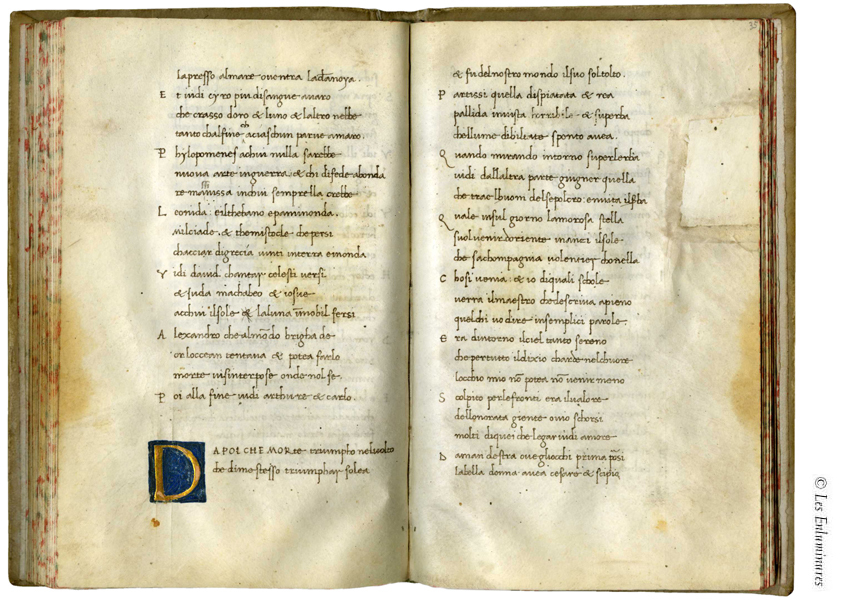 lapresso almare ouentra ladanoya.
E t uidi cyro piu disangue auaro
che crasso doro & luno & laltro nebbe
tanto chalfine aciaschun parue amaro.
P hylopomenes achui nulla sarebbe
nuoua arte inguerra & chi difede abonda
re massinissa inchui semprella crebbe
L eonida: eilthebano epaminonda.
Milciade. & themistocle che persi
chacciar digrecia uinti interra emonda
V idi dauid chantar celesti uersi
& Iuda machabeo & iosue
acchui ilsole & laluna imobil fersi
A lexandro che almondo brigha de
or loccean tentaua & potea farlo
morte uisinterpose onde nol fe.
P oi alla fine uidi arthure & carlo.
D APOI CHE MORte triumpho neluolto
che dime stesso triumphar solea
35
& fu delnostro mondo ilsuo sol tolto.
P artissi quella dispiatata & rea
pallida inuista horribile & superba
chellume dibiltate spento auea.
Q uando mirando intorno superlerba
uidi dallaltra parte giugner quella
che trae lhuom delsepolcro: enuita ilserba
Q uale insul giorno lamorosa stella
suol uenir doriente inanti ilsole
che sachompagnia uolentier chonella
C hosi uenia: & io diquali schole
uerra ilmaestro che descriua apieno
quelchi uo dire insemplici parole.
E ra dintorno ilciel tanto sereno
che per tutto ildixio chardea nel chuore
locchio mio non potea non uenir meno
S colpito per le fronti era iluallore
dellonorata giente ouio schorsi
molti diquei che legar uidi amore
D aman destra oue gliocchi prima porsi
labella donna auea cesare & scipio
© Les Enluminures